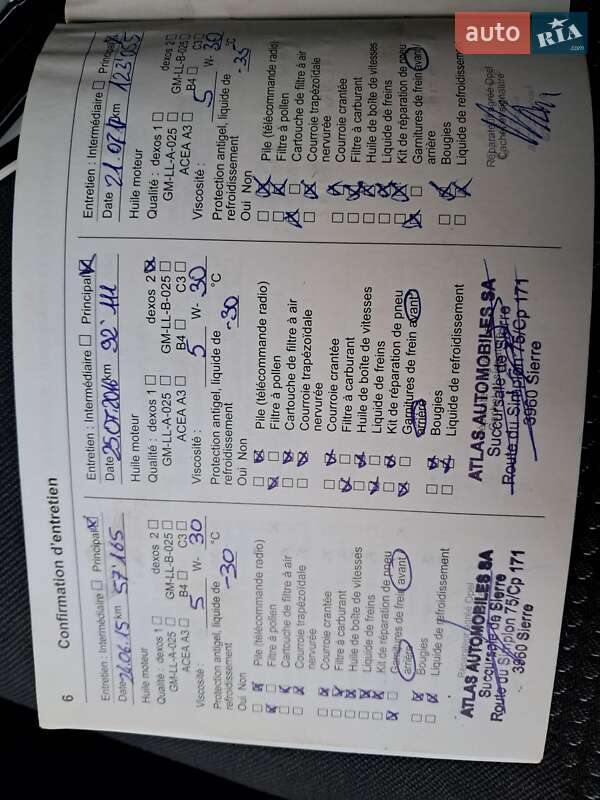 auto
RIA
.com
6
Confirmation d'entretien
Entretien : Intermédiaire Principal
Date 26.06.15 km 57'165
Huile moteur
Qualité : dexos 1 dexos 2
GM-LL-A-025 GM-LL-B-025
ACEA A3 B4 C3
Viscosité : 5 W- 30
Protection antigel, liquide de
refroidissement -30 °C
Oui Non
Pile (télécommande radio)
Filtre à pollen
Cartouche de filtre à air
Courroie trapézoïdale
nervurée
Courroie crantée
Filtre à carburant
Huile de boîte de vitesses
Liquide de freins
Kit de réparation de pneu
Garnitures de frein avant
arrière
Bougies
Liquide de refroidissement
Réparateur Agréé Opel
ATLAS AUTOMOBILES SA
Succursale de Sierre
Route du Simplon 75/Cp 171
3960 Sierre
Entretien : Intermédiaire Principal
Date 25.07.2016 km 92'111
Huile moteur
Qualité : dexos 1 dexos 2
GM-LL-A-025 GM-LL-B-025
ACEA A3 B4 C3
Viscosité : 5 W- 30
Protection antigel, liquide de
refroidissement -30 °C
Oui Non
Pile (télécommande radio)
Filtre à pollen
Cartouche de filtre à air
Courroie trapézoïdale
nervurée
Courroie crantée
Filtre à carburant
Huile de boîte de vitesses
Liquide de freins
Kit de réparation de pneu
Garnitures de frein avant
arrière
Bougies
Liquide de refroidissement
ATLAS AUTOMOBILES SA
Succursale de Sierre
Route du Simplon 75/Cp 171
3960 Sierre
Entretien : Intermédiaire Principal
Date 21.02.17 km
Huile moteur
Qualité : dexos 1 dexos 2
GM-LL-A-025 GM-LL-B-025
ACEA A3 B4 C3
Viscosité : 5 W- 30
Protection antigel, liquide de
refroidissement -35 °C
Oui Non
Pile (télécommande radio)
Filtre à pollen
Cartouche de filtre à air
Courroie trapézoïdale
nervurée
Courroie crantée
Filtre à carburant
Huile de boîte de vitesses
Liquide de freins
Kit de réparation de pneu
Garnitures de frein avant
arrière
Bougies
Liquide de refroidissement
Réparateur Agréé Opel
Cachet et signature